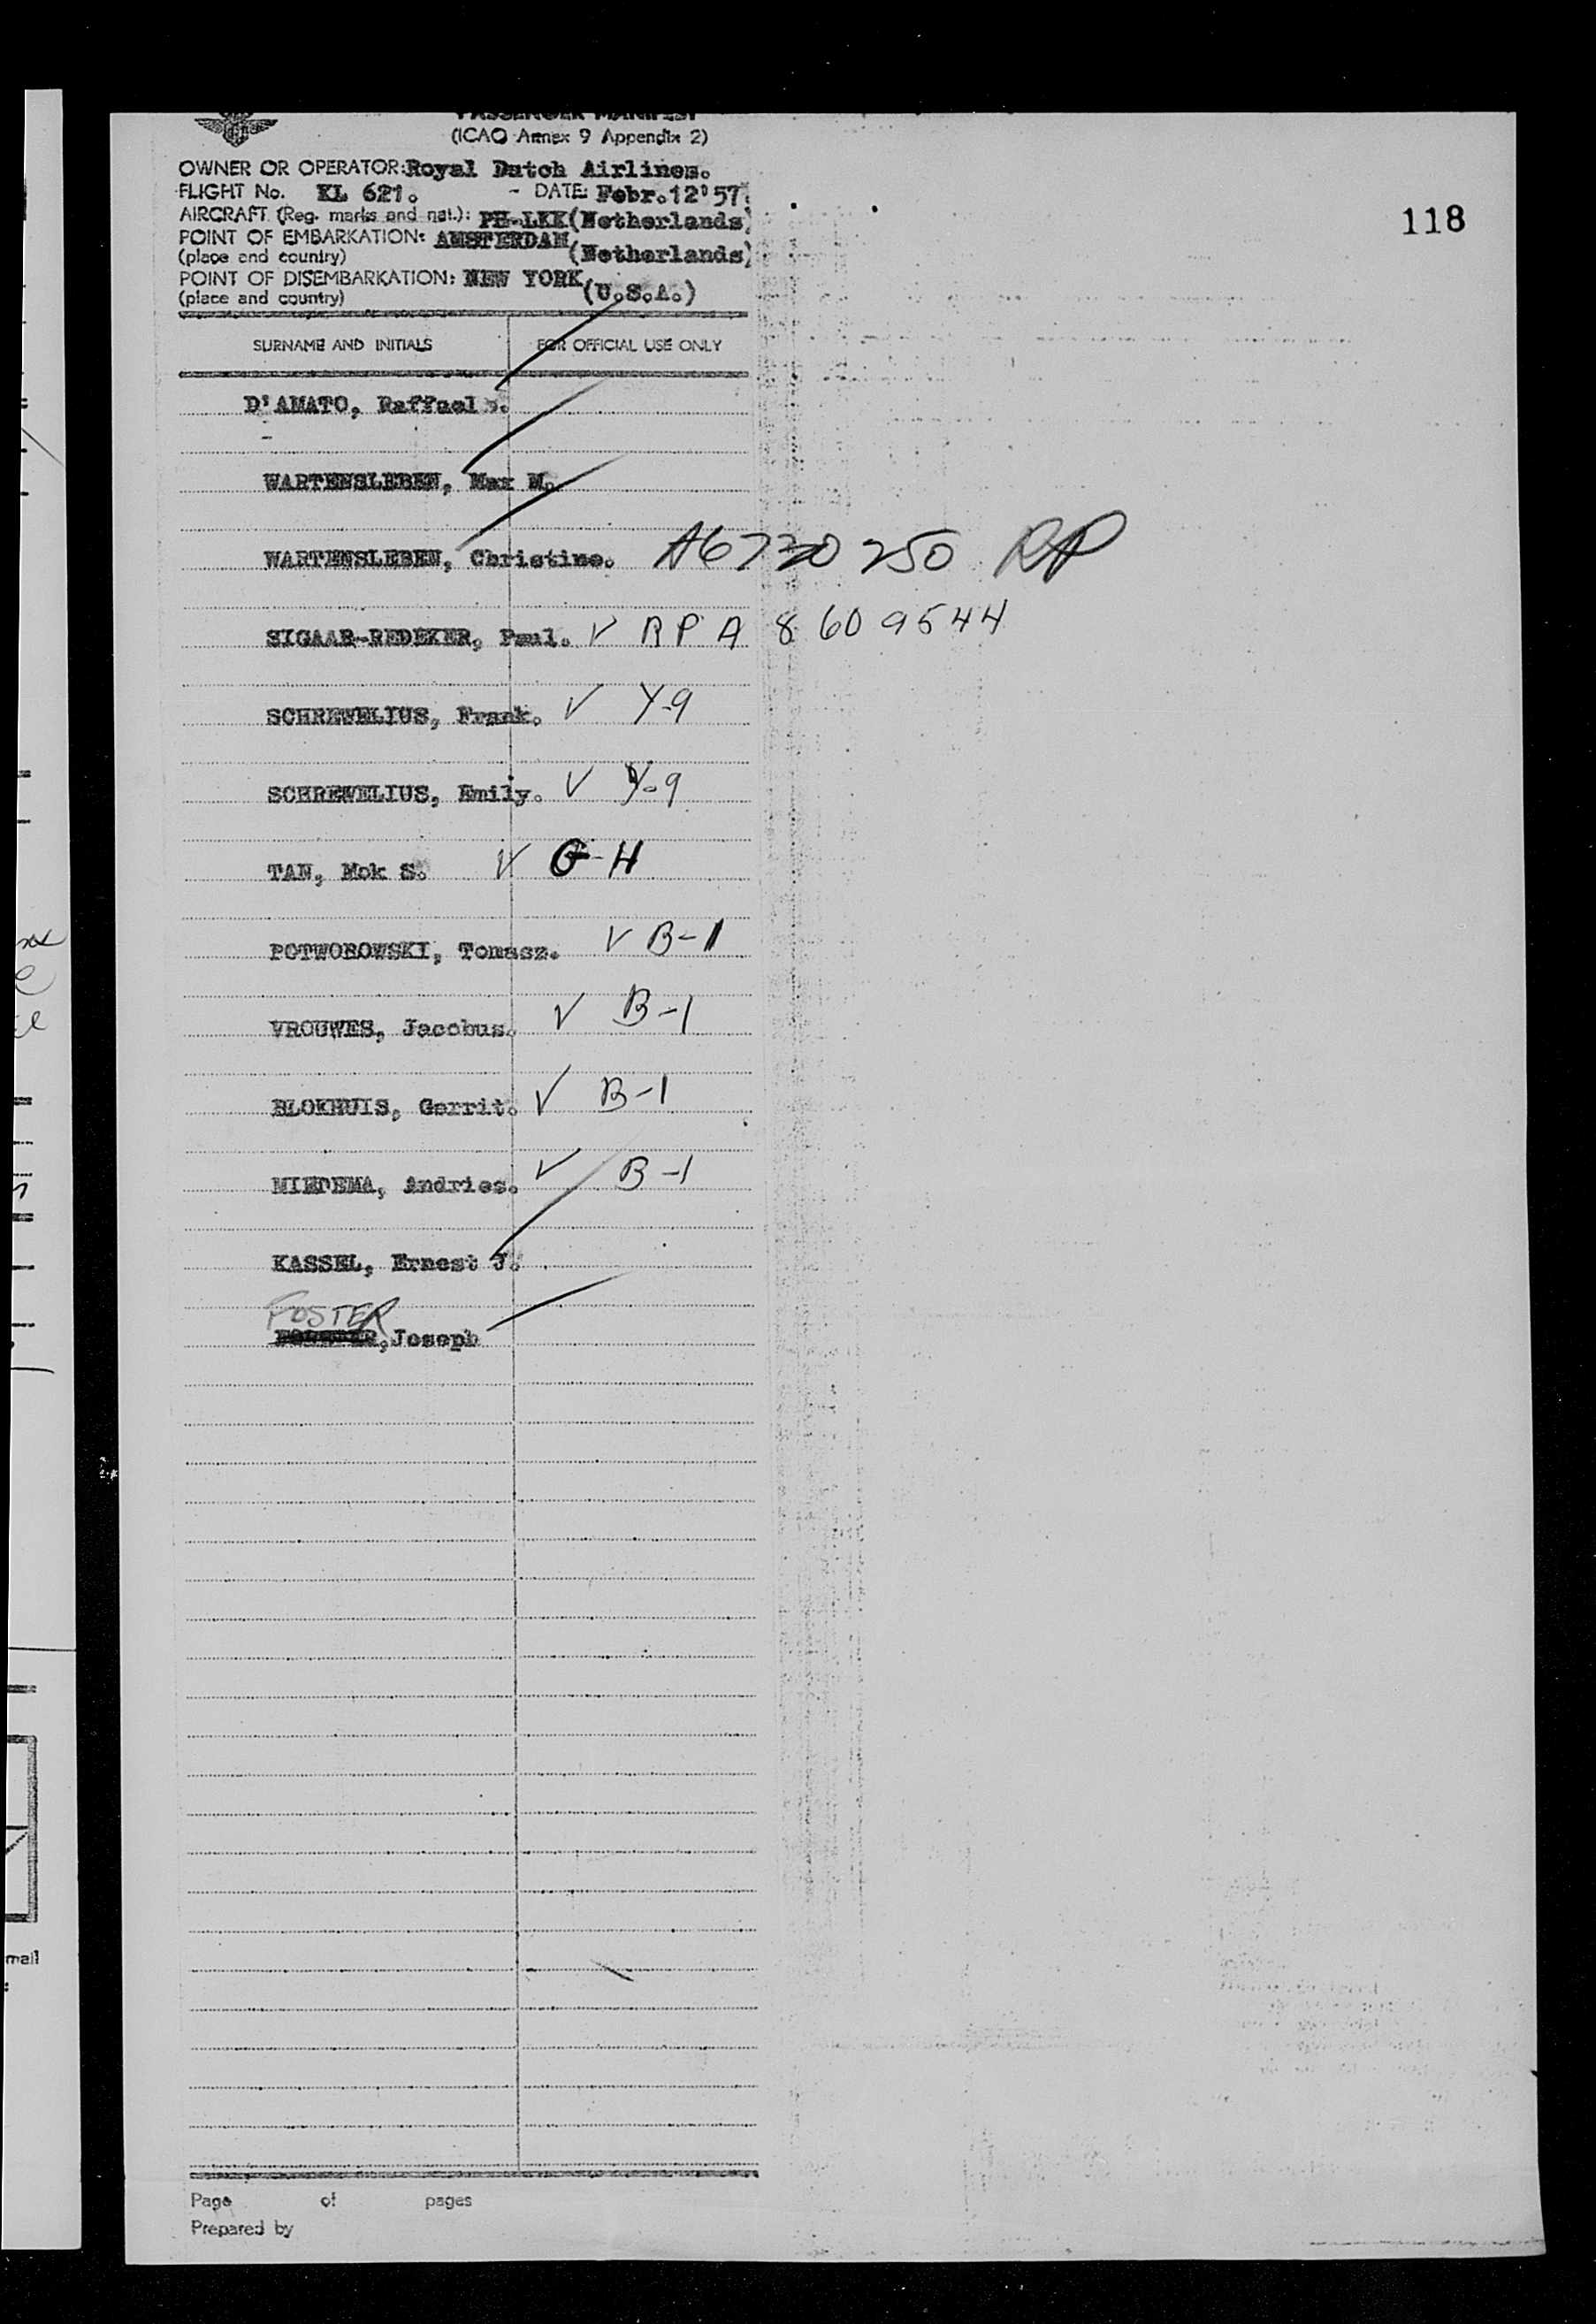 PASSENGER MANIFEST
(ICAO Annex 9 Appendix 2)
118
OWNER OR OPERATOR: Royal Dutch Airlines.
FLIGHT No. KL 621. - DATE: Febr.12'57.
AIRCRAFT (Reg. marks and nat.): PH-LKK(Netherlands)
POINT OF EMBARKATION: AMSTERDAM
(place and country) (Netherlands)
POINT OF DISEMBARKATION: NEW YORK
(place and country) (U.S.A.)
SURNAME AND INITIALS FOR OFFICIAL USE ONLY
D'AMATO, Raffael
WARTENSLEBEN, Max M.
WARTENSLEBEN, Christine. RP
SIGAAR-REDEKER, Paul. V RP A 8 609544
SCHREWELIUS, Frank. V Y-9
SCHREWELIUS, Emily. V Y-9
TAN, Mok S. V G-H
POTWOROWSKI, Tomasz. V B-1
VROUWES, Jacobus. V B-1
BLOKHUIS, Gerrit. V B-1
MIEDEMA, Andries. V B-1
KASSEL, Ernest J.
FOSTER
, Joseph
mail
Page of pages
Prepared by